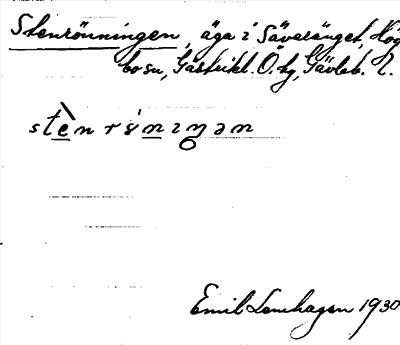 Stenrönningen, äga i Säveränget, Hög
bo sn, Gästrikl. Ö. tg, Gävleb. l.
stènrönıŋən
Emil Lenhagen 1930